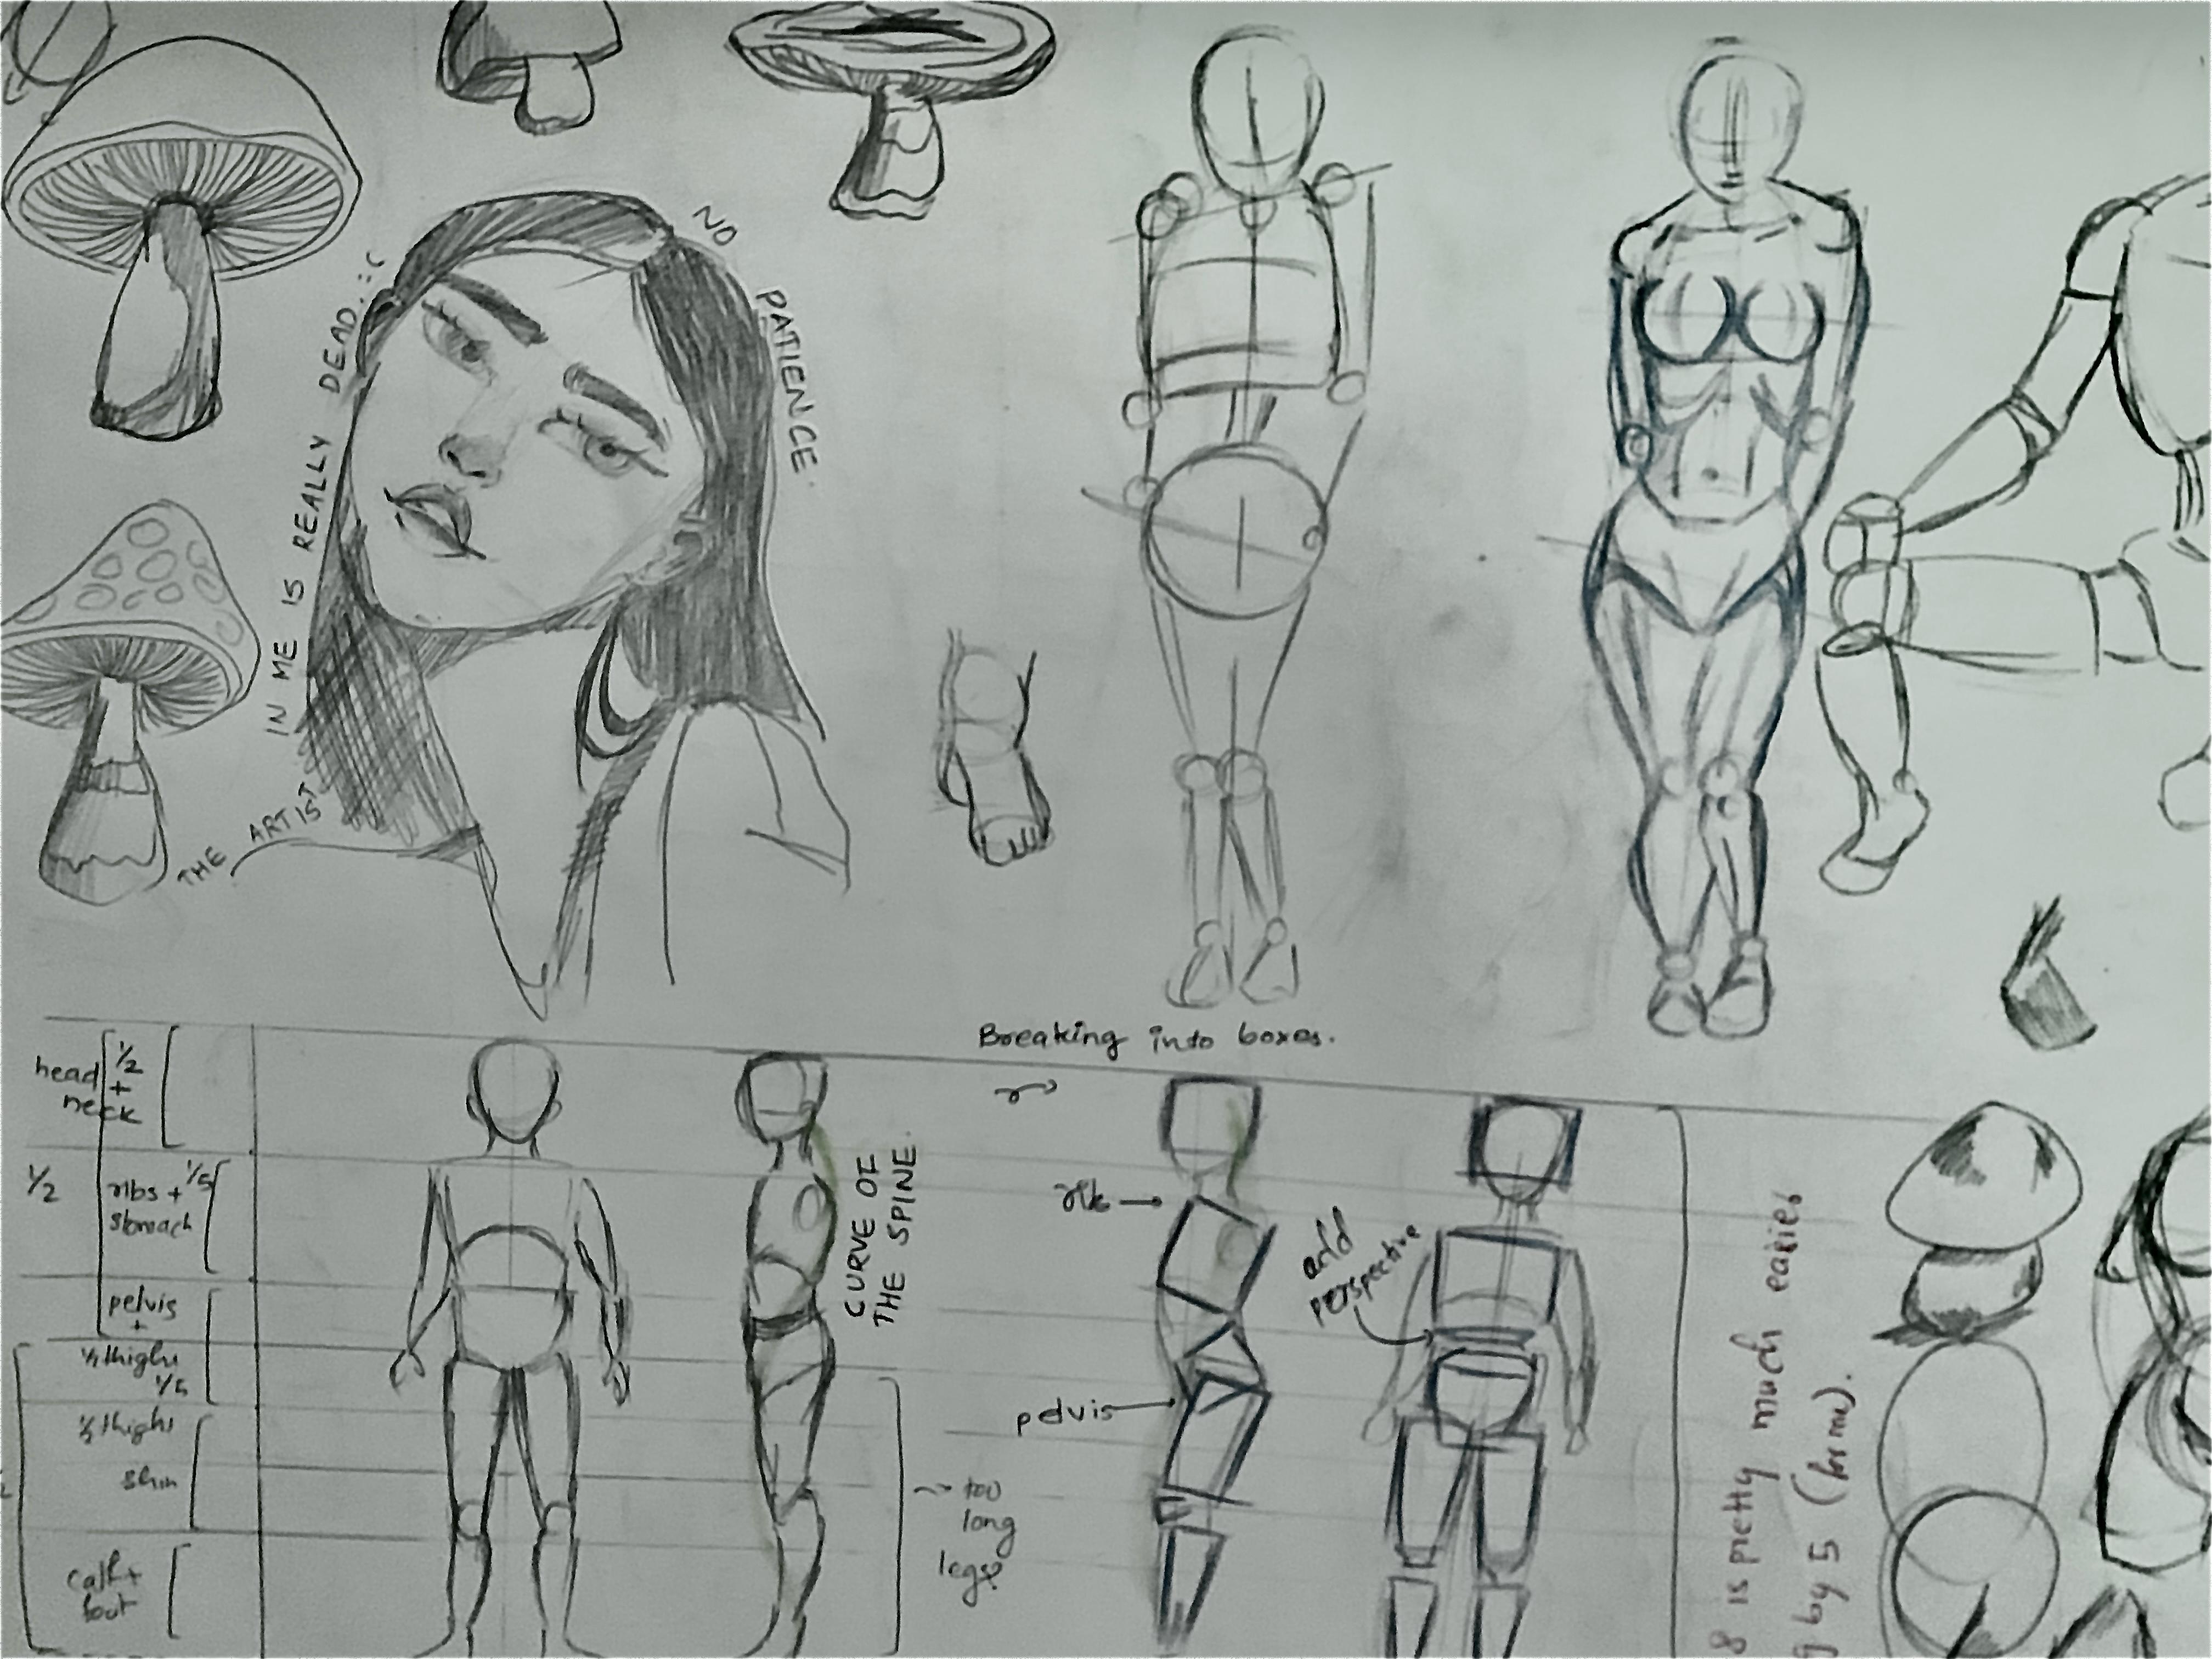 THE ARTIST
IN ME IS REALLY DEAD. :(
NO
PATIENCE.
Breaking into boxes.
head
neck
1/2
+
1/2
ribs +
stomach
1/5
pelvis
+
1/2 thighs
1/5
1/2 thighs
shin
calf +
foot
CURVE OF
THE SPINE.
too
long
legs
rib
pelvis
add
perspective
8 is pretty much easier
by 5 (for me).